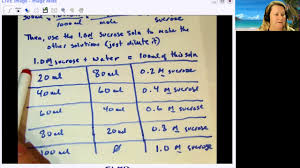 1000ml mole sucrose
Then, use the 1.0M sucrose soln to make the
other solutions (just dilute it)
1.0M sucrose + water = 100ml of this soln
20 ml 80 ml 0.2 M sucrose
40 ml 60 ml 0.4 M sucrose
60 ml 40 ml 0.6 M sucrose
80 ml 20 ml 0.8 M sucrose
100 ml Ø 1.0 M sucrose